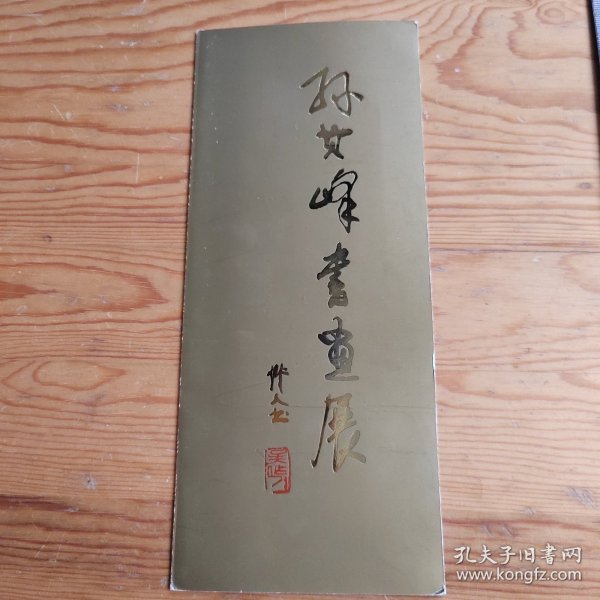 孙其峰書画展
作人書
孔夫子旧書网
www.kongfz.com